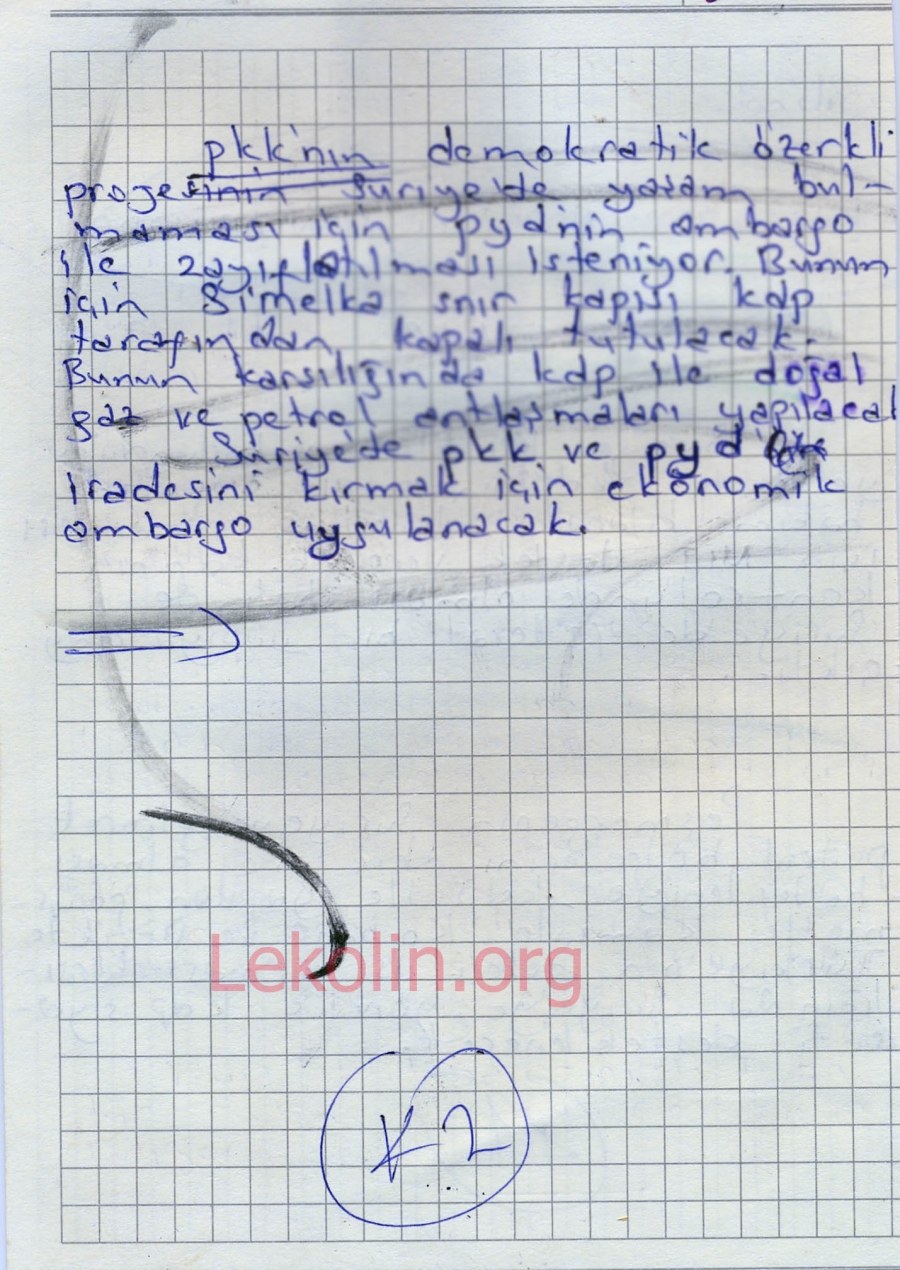 pkk'nın demokratik özerkli
projesinin Suriye'de yaşam bul-
maması için pydnin ambargo
ile zayıflatılması isteniyor. Bunun
için Simelka snır kapısı kdp
tarafından kapalı tutulacak.
Bunun karsılığında kdp ile doğal
gaz ve petrol antlaşmaları yapılacak
Suriye'de pkk ve pyd
iradesini kırmak için ekonomik
ambargo uygulanacak.
Lekolin.org
K2